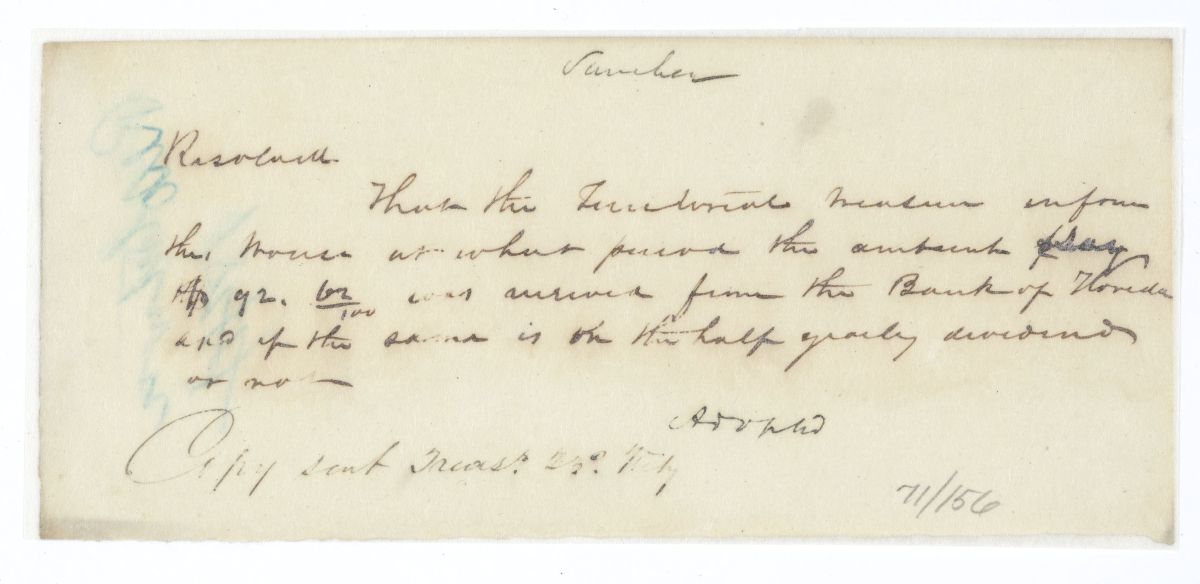 Sanchez
Resolved
That the Territorial Treasurer inform
the House at what period the amount
92. 62/100 was received from the Bank of Florida
and if the same is on the half yearly dividend
or not
Adopted
Copy sent Treasr. 23d. Feby
71/156